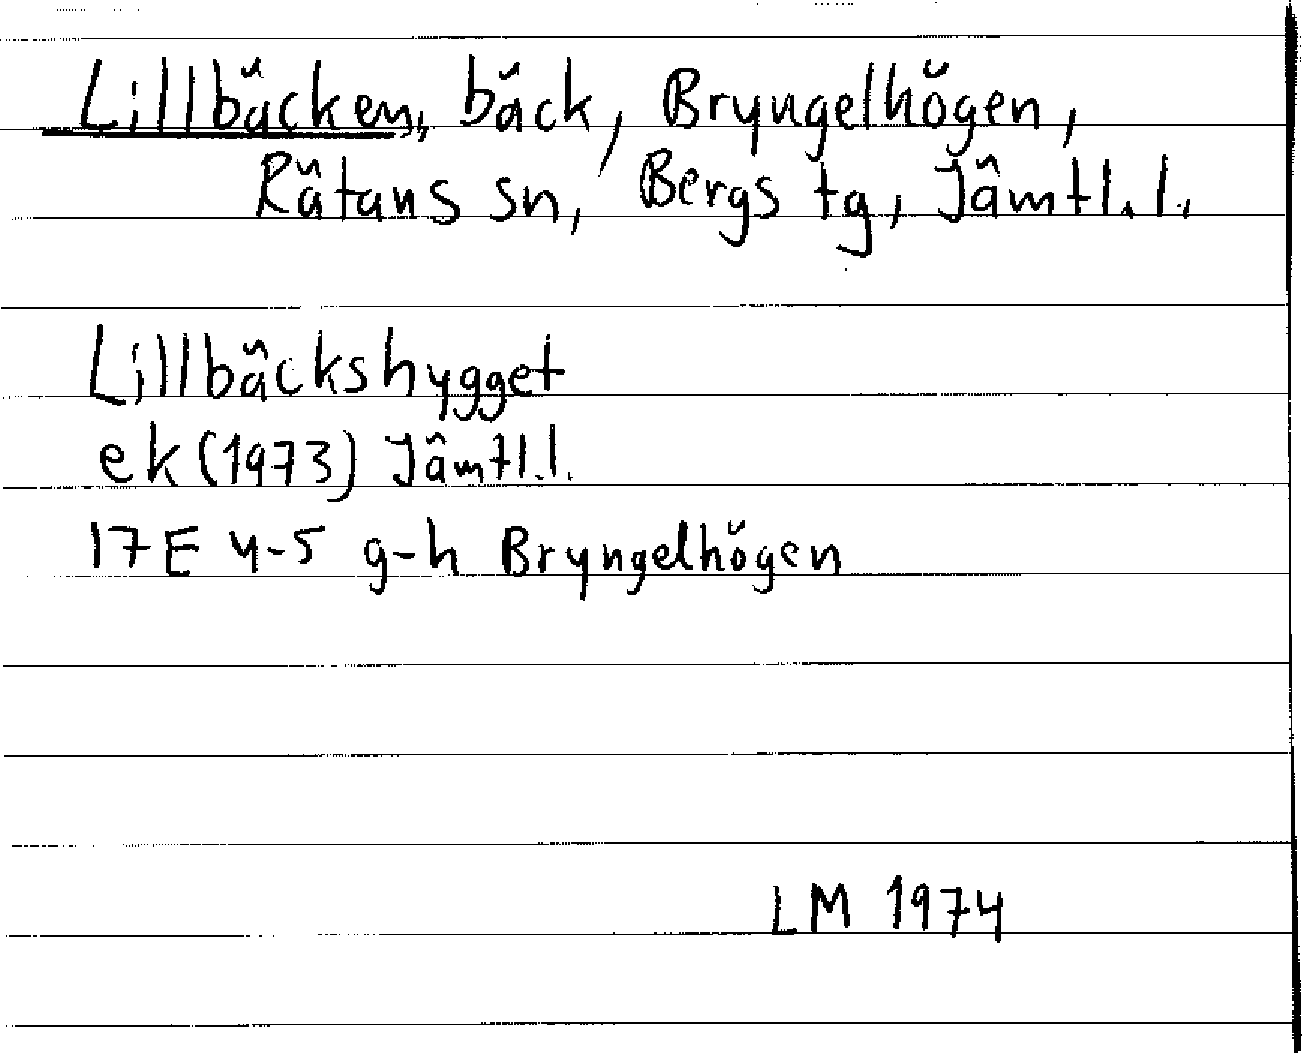 Lillbäcken, bäck, Bryngelhögen,
Rätans sn, Bergs tg, Jämtl. l.
Lillbäckshygget
ek (1973) Jämtl. l.
17E 4-5 g-h Bryngelhögen
LM 1974